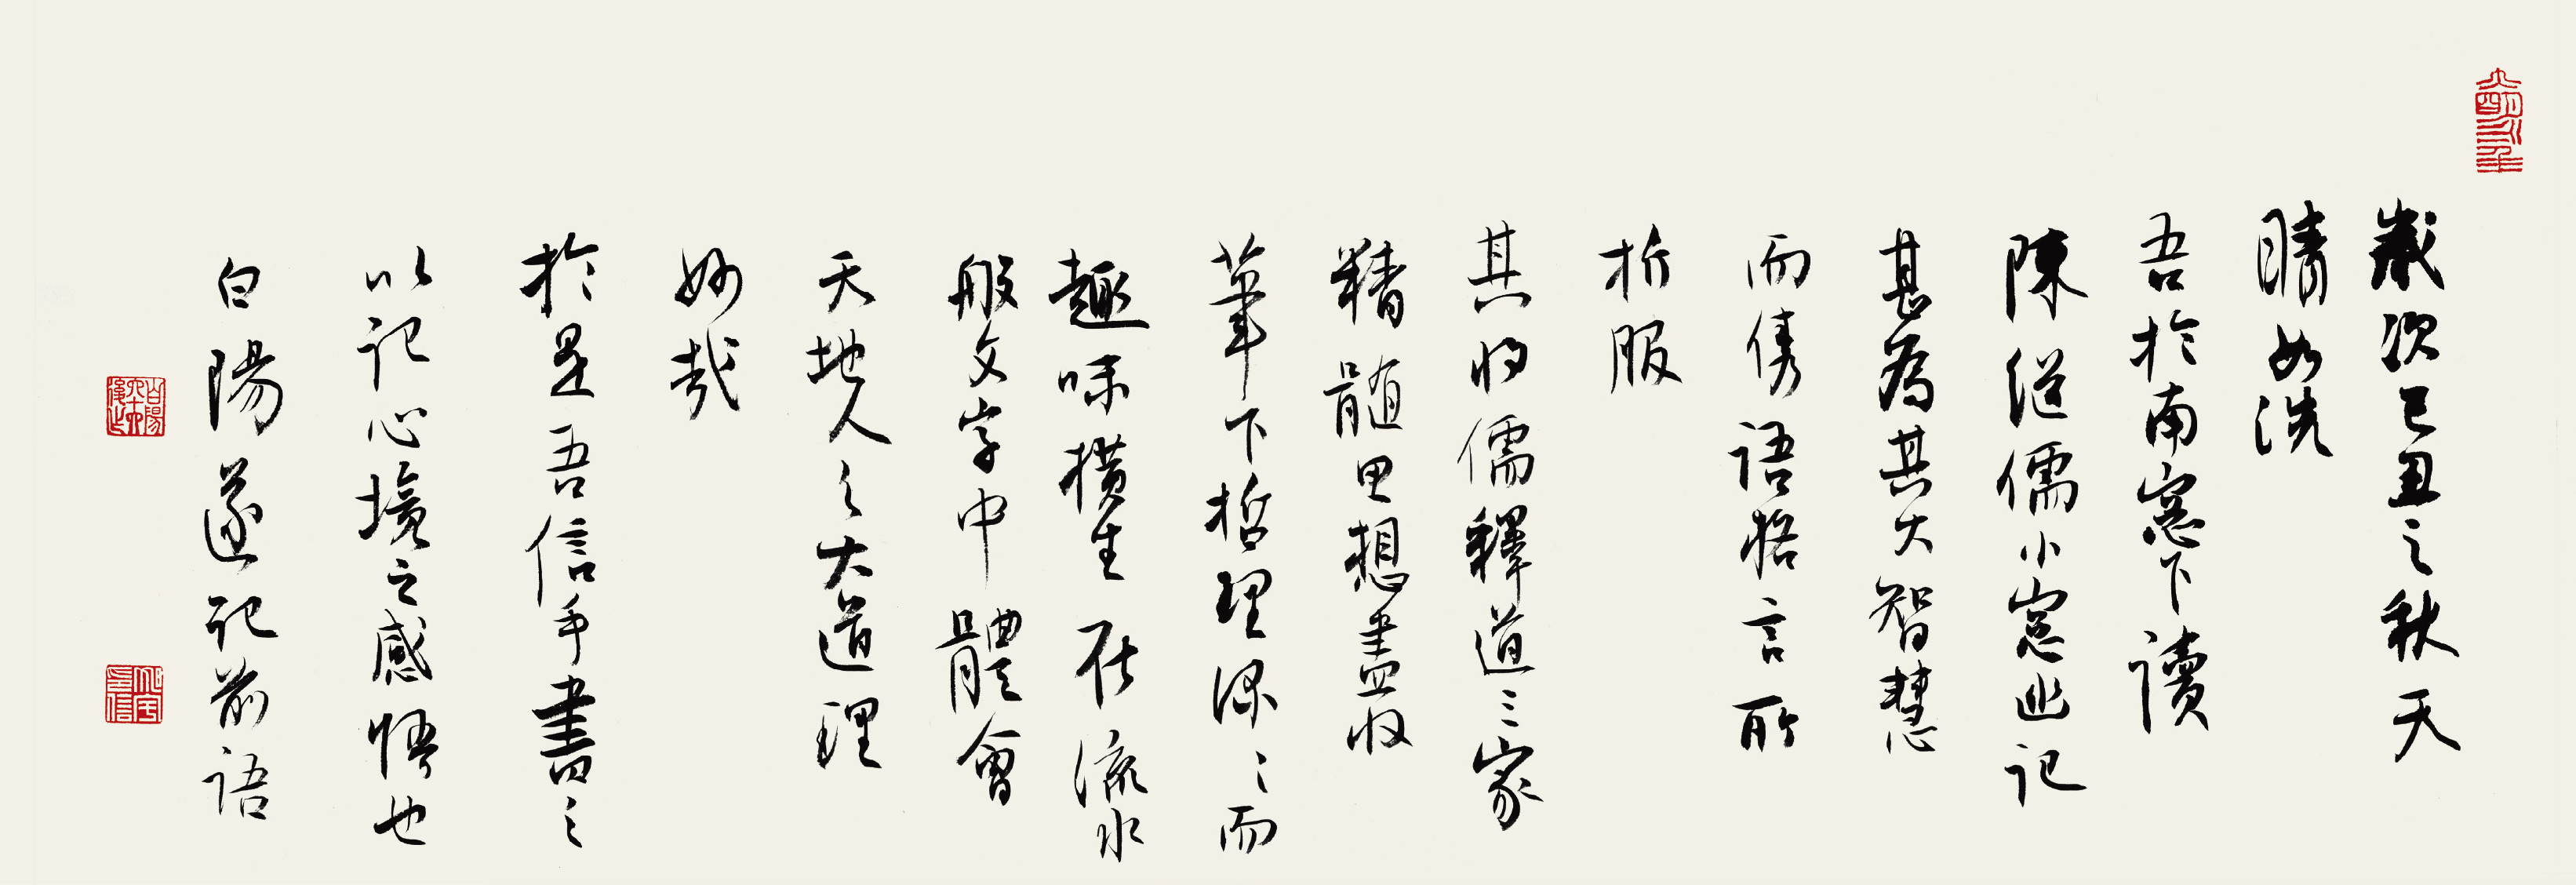 歲次己丑之秋天
晴如洗
吾於南窓下讀
陳継儒小窓幽记
甚為其大智慧
而雋语格言所
折服
其将儒釋道三家
精髓思想盡收
筆下哲理深深而
趣味横生在流水
般文字中體會
天地人之大道理
妙哉
於是吾信手書之
以记心境之感悟也
白陽遂记前语